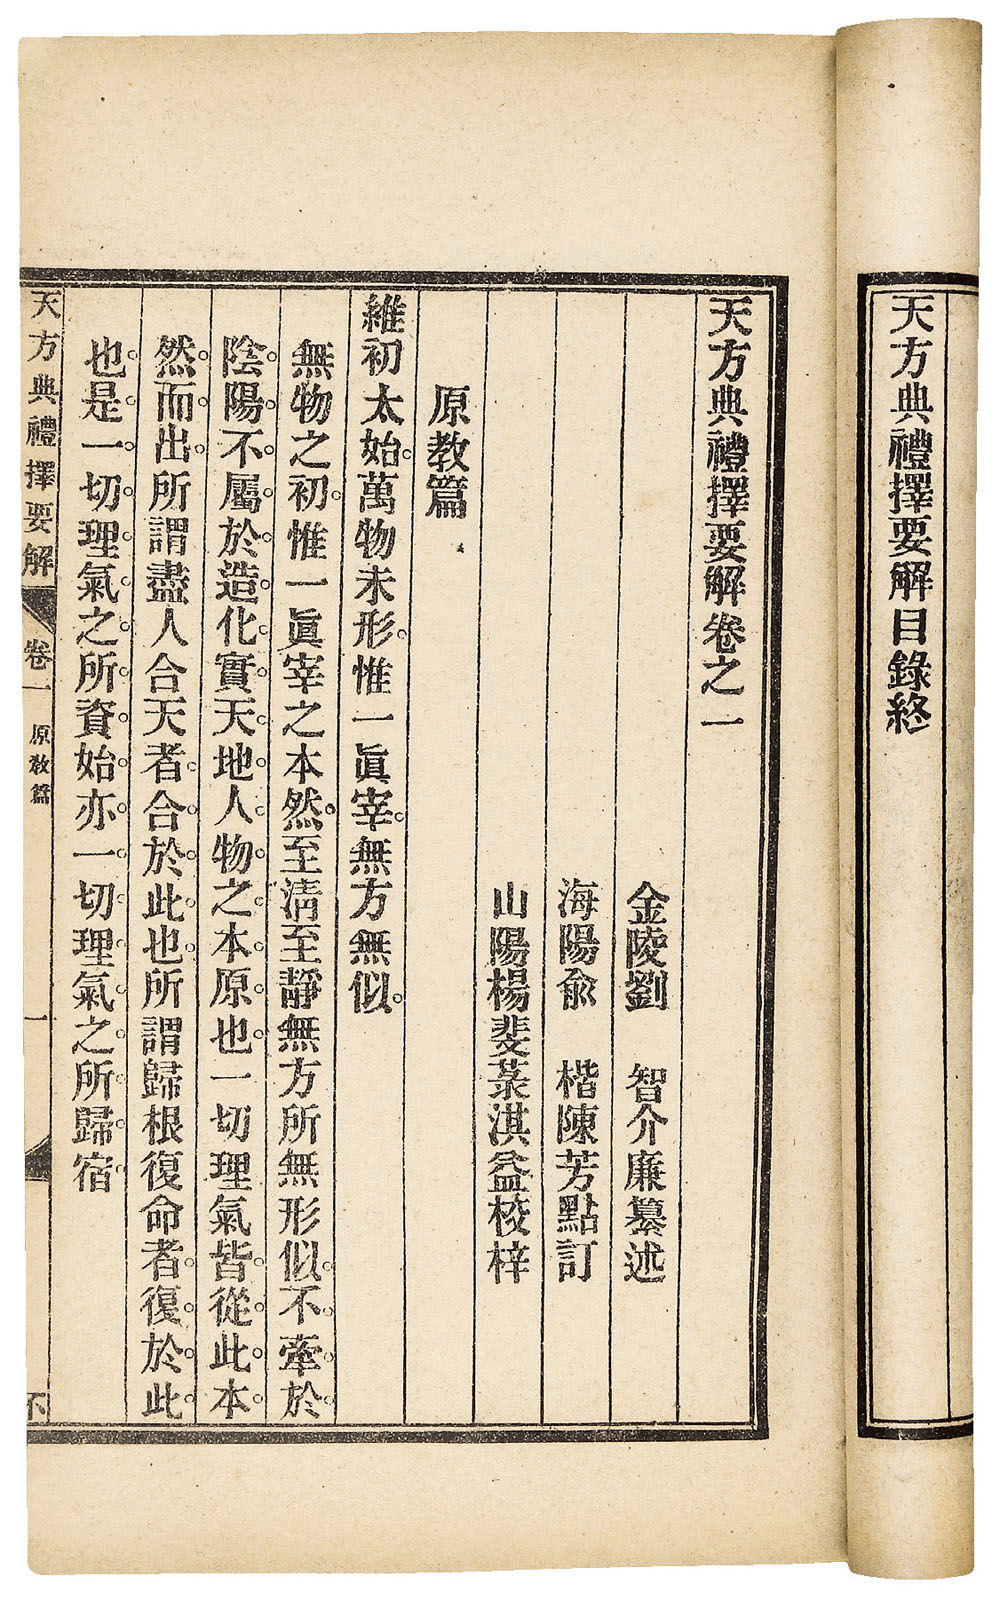 天方典禮擇要解目錄終
天方典禮擇要解卷之一
金陵劉　智介廉纂述
海陽俞　楷陳芳點訂
山陽楊斐菉淇益校梓
原教篇
維初太始。萬物未形。惟一眞宰。無方無似。
無物之初。惟一眞宰之本然。至清至靜無方所無形似。不牽。於。
陰。陽。不。屬。於。造。化。實。天。地。人。物。之。本。原。也。一切理氣皆。從。此。本。
然。而。出。所謂盡人合天者。合。於。此。也所謂歸根復命者。復。於。此。
也。是。一。切。理。氣。之。所。資。始。亦。一。切。理。氣。之。所。歸。宿。
天方典禮擇要解　卷一　原教篇　一